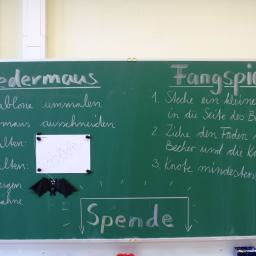 edermaus
ablone ummalen
maus ausschneiden
alten:
alten:
eigen
ahne
Fangspie
1. Steche ein kleine
in die Seite des B
2. Ziehe den Faden
Becher und die K
3. Knote mindesten
Spende